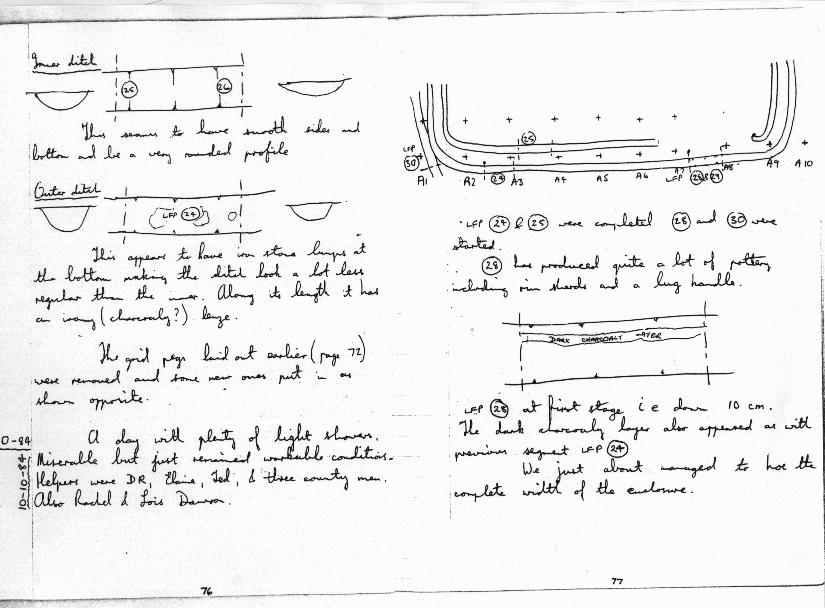 Inner ditch
25
26
This seems to have smooth sides and
bottom and be a very rounded profile
Outer ditch
LFP 24
This appears to have iron stone lumps at
the bottom making the ditch look a lot less
regular than the inner. Along its length it has
an (charcoaly?) lenze.
The grid pegs laid out earlier (page 72)
were removed and some new ones put in as
shown opposite.
0-84
10-10-84
A day with plenty of light showers.
Miserable but just remained workable conditions.
Helpers were DR, Elaine, Ted, & three county men.
Also Rachel & Lois Dawson.
76
25
LFP
30
A1
A2
24
A3
A4
A5
A6
A7
LFP
28
A8
A9
A10
LFP 24 & 25 were completed 28 and 30 were
started.
28 has produced quite a lot of pottery
including rim sherds and a lug handle.
DARK CHARCOALY LAYER
LFP 28 at first stage i e down 10 cm.
The dark charcoaly layer also appeared as with
previous segment LFP 24
We just about managed to hoe the
complete width of the enclosure.
77